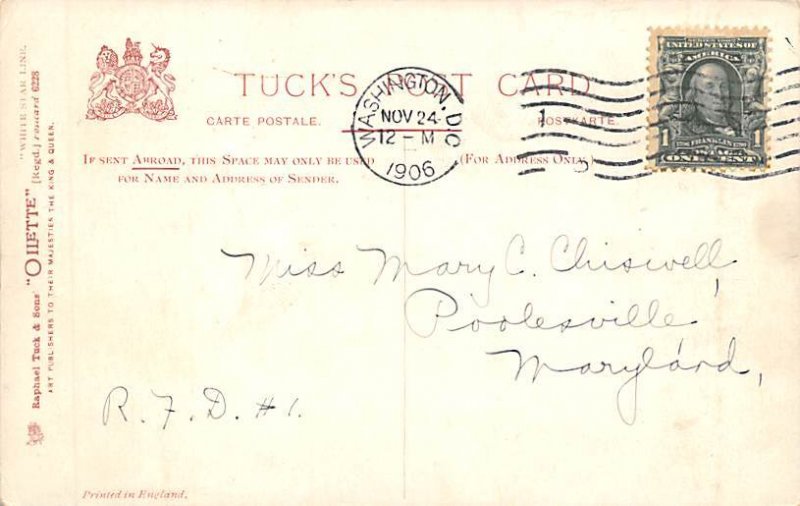 TUCK'S POST CARD
CARTE POSTALE. POSTKARTE.
IF SENT ABROAD, THIS SPACE MAY ONLY BE USED
FOR NAME AND ADDRESS OF SENDER.
(FOR ADDRESS ONLY.)
WASHINGTON D.C.
NOV 24
12-M
1906
1
SERIES 1902
UNITED STATES OF AMERICA
1706 FRANKLIN 1790
1 POSTAGE 1
ONE CENT
Miss Mary C. Chiswell,
Poolesville
Maryland,
R.F.D. #1.
"WHITE STAR LINE.
Raphael Tuck & Sons' "OILETTE" [Regd.] Postcard 6228
ART PUBLISHERS TO THEIR MAJESTIES THE KING & QUEEN.
Printed in England.